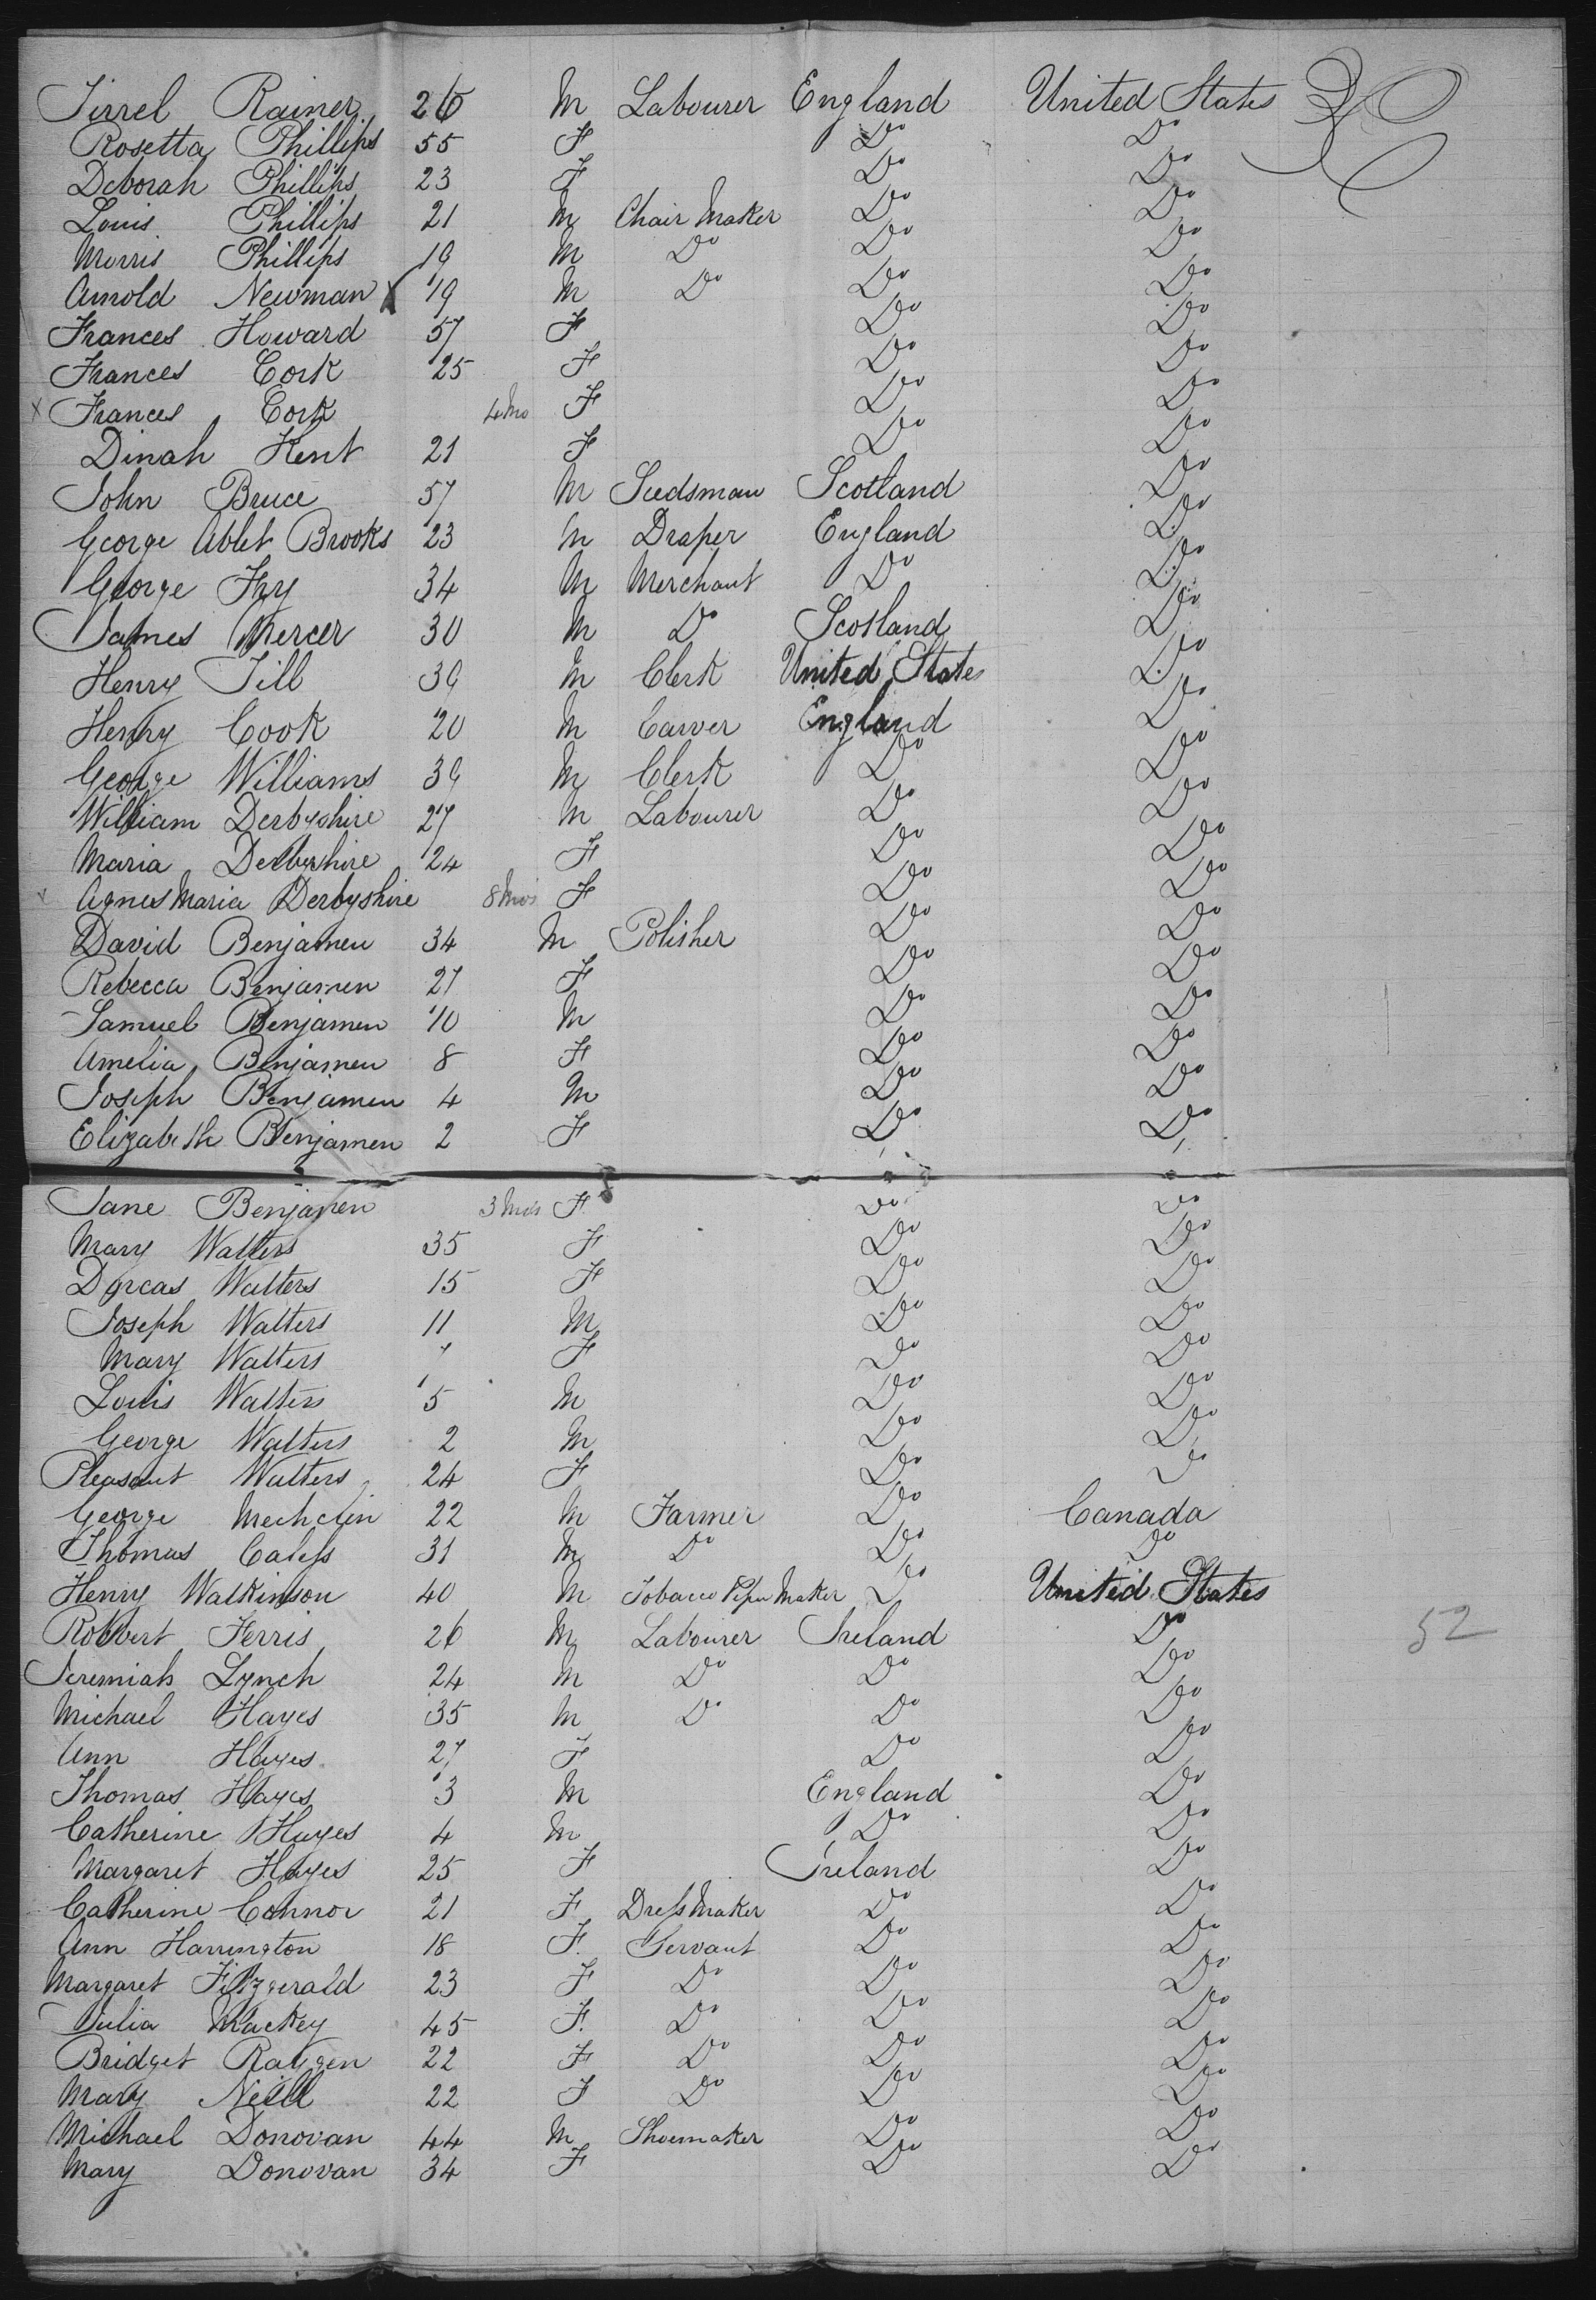 Tirrel Rainer 26 M Labourer England United States
Rosetta Phillips 55 F Do Do
Deborah Phillips 23 F Do Do
Louis Phillips 21 M Chair Maker Do Do
Morris Phillips 19 M Do Do Do
Arnold Newman X 19 M Do Do Do
Frances Howard 57 F Do Do
Frances Cork 25 F Do Do
X Frances Cork 4 Mo F Do Do
Dinah Kent 21 F Do Do
John Bruce 57 M Seedsman Scotland Do
George Ablet Brooks 23 M Draper England Do
George Fry 34 M Merchant Do Do
James Mercer 30 M Do Scotland Do
Henry Till 39 M Clerk United States Do
Henry Cook 20 M Carver England Do
George Williams 39 M Clerk Do Do
William Derbyshire 27 M Labourer Do Do
Maria Derbyshire 24 F Do Do
Agnes Maria Derbyshire 8 Mos F Do Do
David Benjamen 34 M Polisher Do Do
Rebecca Benjamen 27 F Do Do
Samuel Benjamen 10 M Do Do
Amelia Benjamen 8 F Do Do
Joseph Benjamen 4 M Do Do
Elizabeth Benjamen 2 F Do Do
Jane Benjamen 3 Mos F Do Do
Mary Walters 35 F Do Do
Dorcas Walters 15 F Do Do
Joseph Walters 11 M Do Do
Mary Walters 7 F Do Do
Louis Walters 5 M Do Do
George Walters 2 M Do Do
Pleasant Walters 24 F Do Do
George 22 M Farmer Do Canada
Thomas 31 M Do Do Do
Henry Watkinson 40 M Tobacco Pipe Maker Do United States
Robbert Ferris 26 M Labourer Ireland Do
52
Jeremiah Lynch 24 M Do Do Do
Michael Hayes 35 M Do Do Do
Ann Hayes 27 F Do Do
Thomas Hayes 3 M England Do
Catherine Hayes 4 M Do Do
Margaret Hayes 25 F Ireland Do
Catherine Connor 21 F Dress Maker Do Do
Ann Harrington 18 F Servant Do Do
Margaret Fitzgerald 23 F Do Do Do
Julia Mackey 45 F Do Do Do
Bridget 22 F Do Do Do
Mary Neill 22 F Do Do Do
Michael Donovan 44 M Shoemaker Do Do
Mary Donovan 34 F Do Do